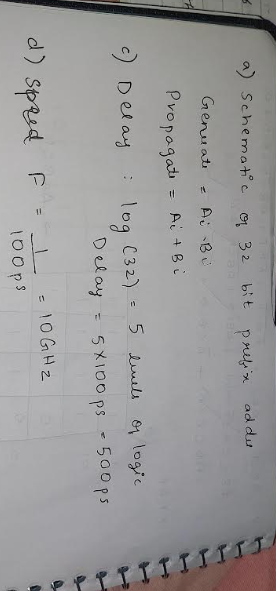 a) Schematic of 32 bit prefix adder
Generate = Ai · Bi
Propagate = Ai + Bi
c) Delay : log (32) = 5 levels of logic
Delay = 5 × 100 ps = 500 ps
d) Speed F = 1 / 100 ps = 10 GHz